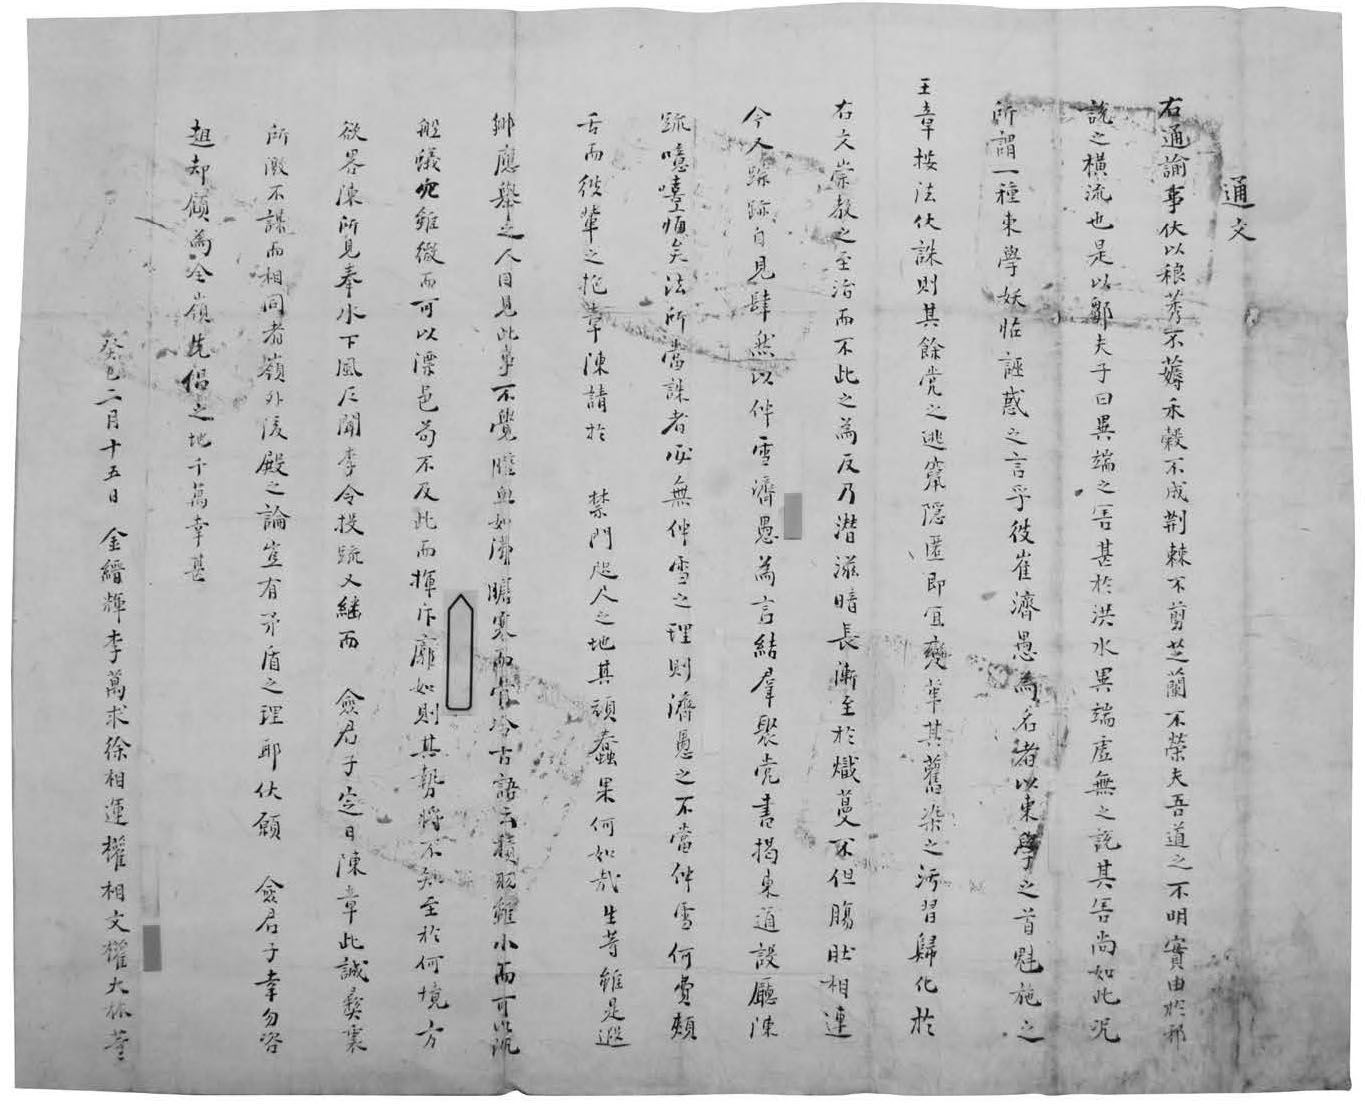 通文
右通諭事伏以稂莠不薅禾穀不成荊棘不剪芝蘭不榮夫吾道之不明實由於邪
說之橫流也是以鄒夫子曰異端之害甚於洪水異端虛無之說其害尚如此況
所謂一種東學妖恠誣惑之言乎彼崔濟愚為名者以東學之首魁施之
王章按法伏誅則其餘党之逃竄隱匿即宜變革其舊染之汚習歸化於
右文崇教之至治而不此之為反乃潜滋暗長漸至於熾蔓不但腸肚相連
今又跡跡自見肆然以伸雪濟愚為言結羣聚党書揭東道設廳陳
疏噫嘻痛矣法所當誅者必無伸雪之理則濟愚之不當伸雪何費頰
舌而彼輩之抱章陳請於 禁門咫尺之地其頑蠢果何如哉生等雖是遐
鄉應舉之人目見此事不覺腔血如沸膽寒而骨冷古語云 雖小而可以
般蟻 雖微而可以漂邑苟不及此而揮斥廓如則其勢將不知至於何境方
欲畧陳所見奉承下風仄聞李令投疏又繼而 僉君子定日陳章此誠彛裏
所激不謀而相同者嶺外後殿之論豈有矛盾之理耶伏願 僉君子幸勿咨
趄却顧為冷嶺先倡之地千萬幸甚
癸巳二月十五日 金縉輝李萬求徐相運權相文權大林等